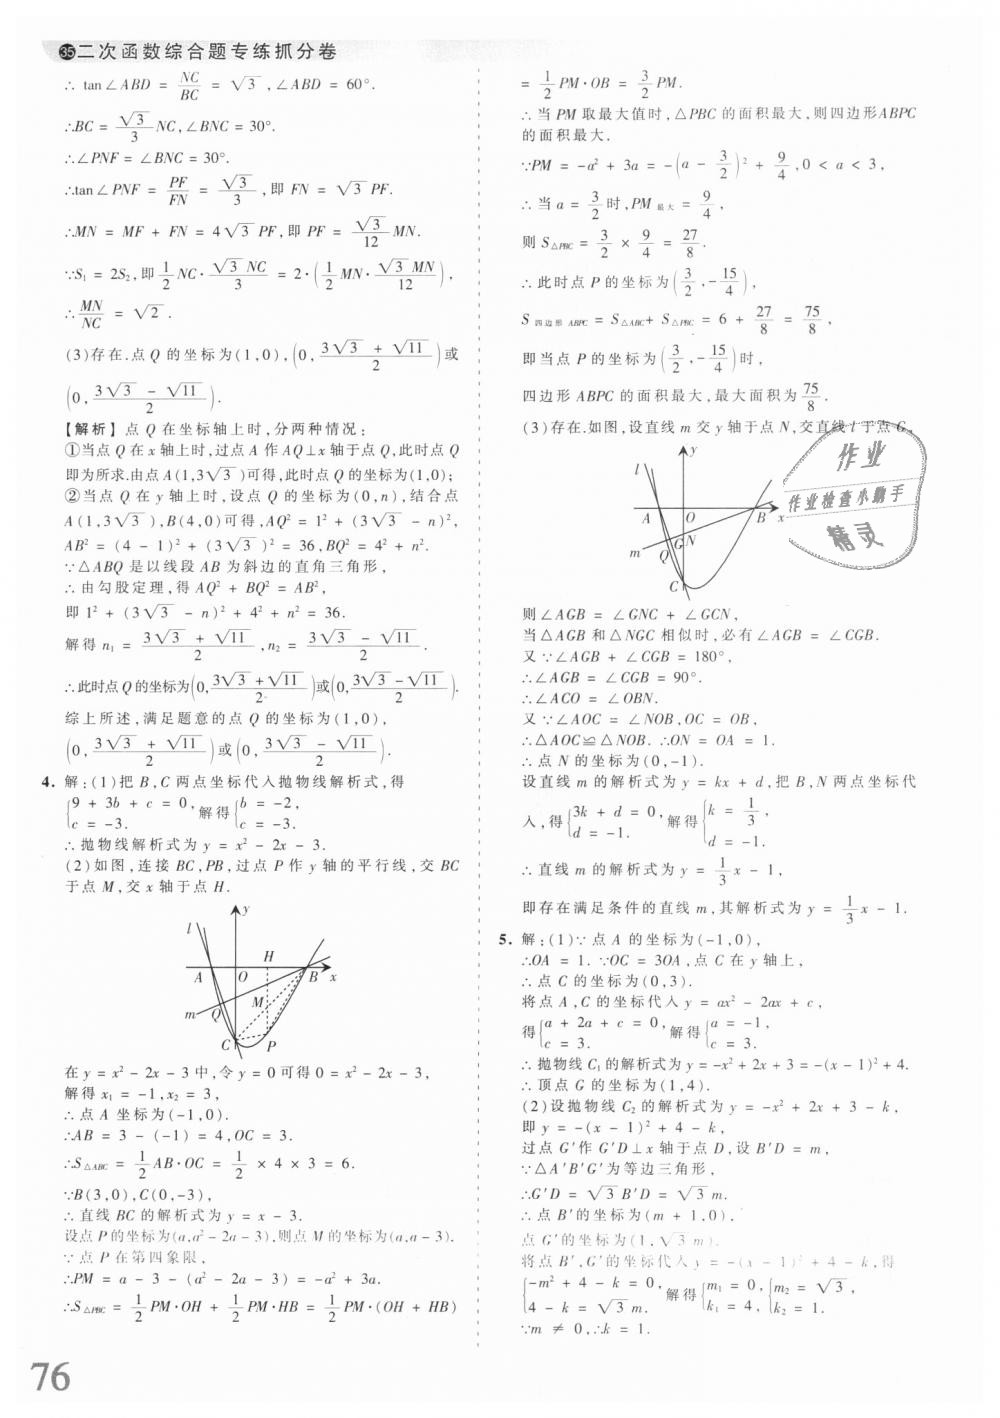 ㉟二次函数综合题专练抓分卷
∴ tan∠ABD = NC/BC = √3, ∠ABD = 60°.
∴BC = √3/3 NC, ∠BNC = 30°.
∴∠PNF = ∠BNC = 30°.
∴tan∠PNF = PF/FN = √3/3, 即 FN = √3 PF.
∴MN = MF + FN = 4√3 PF, 即 PF = √3/12 MN.
∵S₁ = 2S₂, 即 1/2 NC·√3NC/3 = 2·(1/2 MN·√3MN/12),
∴ MN/NC = √2.
(3)存在.点 Q 的坐标为(1,0),(0, (3√3 + √11)/2)或
(0, (3√3 - √11)/2).
【解析】点 Q 在坐标轴上时,分两种情况:
①当点 Q 在 x 轴上时,过点 A 作 AQ⊥x 轴于点 Q,此时点 Q
即为所求.由点 A(1,3√3)可得,此时点 Q 的坐标为(1,0);
②当点 Q 在 y 轴上时,设点 Q 的坐标为(0,n),结合点
A(1,3√3),B(4,0)可得,AQ² = 1² + (3√3 - n)²,
AB² = (4 - 1)² + (3√3)² = 36,BQ² = 4² + n².
∵△ABQ 是以线段 AB 为斜边的直角三角形,
∴由勾股定理,得 AQ² + BQ² = AB²,
即 1² + (3√3 - n)² + 4² + n² = 36.
解得 n₁ = (3√3 + √11)/2, n₂ = (3√3 - √11)/2.
∴此时点 Q 的坐标为(0, (3√3 + √11)/2)或(0, (3√3 - √11)/2).
综上所述,满足题意的点 Q 的坐标为(1,0),
(0, (3√3 + √11)/2)或(0, (3√3 - √11)/2).
4. 解:(1)把 B,C 两点坐标代入抛物线解析式,得
{9 + 3b + c = 0, c = -3. 解得{b = -2, c = -3.
∴抛物线解析式为 y = x² - 2x - 3.
(2)如图,连接 BC,PB,过点 P 作 y 轴的平行线,交 BC
于点 M,交 x 轴于点 H.
y
l
H
A O B x
M
m Q
C P
在 y = x² - 2x - 3 中,令 y = 0 可得 0 = x² - 2x - 3,
解得 x₁ = -1,x₂ = 3,
∴点 A 坐标为(-1,0).
∴AB = 3 - (-1) = 4,OC = 3.
∴S△ABC = 1/2 AB·OC = 1/2 × 4 × 3 = 6.
∵B(3,0),C(0,-3),
∴直线 BC 的解析式为 y = x - 3.
设点 P 的坐标为(a,a² - 2a - 3),则点 M 的坐标为(a,a - 3).
∵点 P 在第四象限,
∴PM = a - 3 - (a² - 2a - 3) = -a² + 3a.
∴S△PBC = 1/2 PM·OH + 1/2 PM·HB = 1/2 PM·(OH + HB)
76
= 1/2 PM·OB = 3/2 PM.
∴当 PM 取最大值时,△PBC 的面积最大,则四边形ABPC
的面积最大.
∵PM = -a² + 3a = -(a - 3/2)² + 9/4, 0 < a < 3,
∴当 a = 3/2 时,PM最大 = 9/4,
则 S△PBC = 3/2 × 9/4 = 27/8.
∴此时点 P 的坐标为(3/2, -15/4),
S四边形ABPC = S△ABC + S△PBC = 6 + 27/8 = 75/8,
即当点 P 的坐标为(3/2, -15/4)时,
四边形 ABPC 的面积最大,最大面积为 75/8.
(3)存在.如图,设直线 m 交 y 轴于点 N,交直线 l 于点 G,
y
l
A O B x
m Q G N
C
作业
作业检查小助手
精灵
则∠AGB = ∠GNC + ∠GCN,
当△AGB 和△NGC 相似时,必有∠AGB = ∠CGB.
又∵∠AGB + ∠CGB = 180°,
∴∠AGB = ∠CGB = 90°.
∴∠ACO = ∠OBN.
又∵∠AOC = ∠NOB,OC = OB,
∴△AOC≌△NOB. ∴ON = OA = 1.
∴点 N 的坐标为(0,-1).
设直线 m 的解析式为 y = kx + d,把 B,N 两点坐标代
入,得{3k + d = 0, d = -1. 解得{k = 1/3, d = -1.
∴直线 m 的解析式为 y = 1/3 x - 1,
即存在满足条件的直线 m,其解析式为 y = 1/3 x - 1.
5. 解:(1)∵点 A 的坐标为(-1,0),
∴OA = 1. ∵OC = 3OA,点 C 在 y 轴上,
∴点 C 的坐标为(0,3).
将点 A,C 的坐标代入 y = ax² - 2ax + c,
得{a + 2a + c = 0, c = 3. 解得{a = -1, c = 3.
∴抛物线 C₁ 的解析式为 y = -x² + 2x + 3 = -(x - 1)² + 4.
∴顶点 G 的坐标为(1,4).
(2)设抛物线 C₂ 的解析式为 y = -x² + 2x + 3 - k,
即 y = -(x - 1)² + 4 - k,
过点 G′作 G′D⊥x 轴于点 D,设 B′D = m,
∵△A′B′G′为等边三角形,
∴G′D = √3 B′D = √3 m.
∴点 B′的坐标为(m + 1,0),
点 G′的坐标为(1,√3 m).
将点 B′,G′的坐标代入 y = -(x - 1)² + 4 - k,得
{-m² + 4 - k = 0, 4 - k = √3 m. 解得{m₁ = 0, k₁ = 4, {m₂ = √3, k₂ = 1.
∵m ≠ 0,∴k = 1.